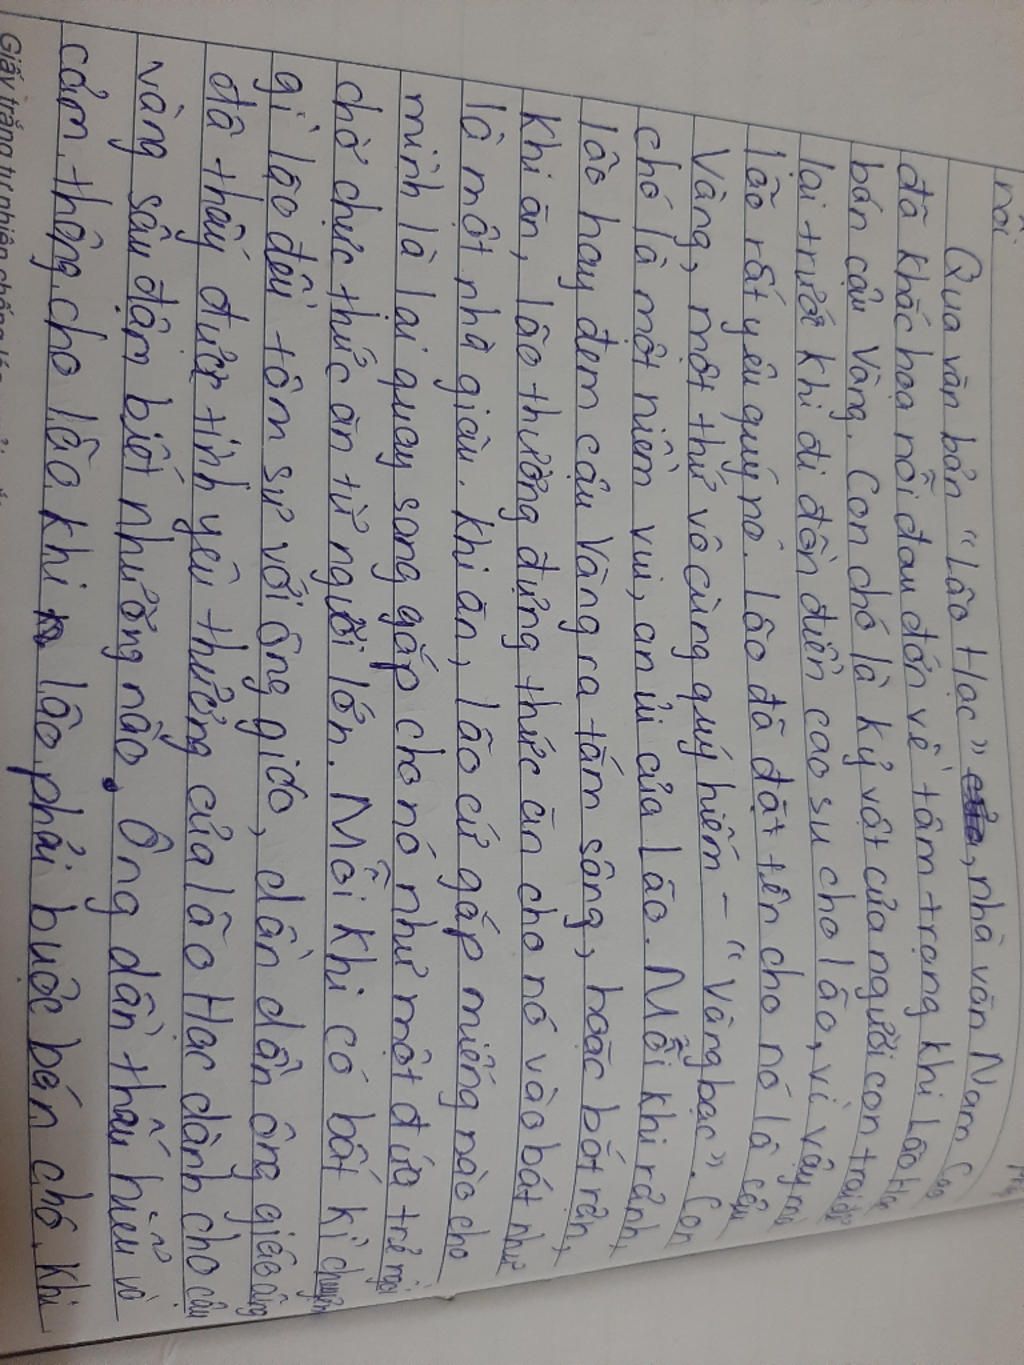 nổi
Qua văn bản "Lão Hạc", nhà văn Nam Cao
đã khắc hoạ nỗi đau đớn về tâm trạng khi Lão Hạc
bán cậu Vàng. Con chó là kỷ vật của người con trai để
lại trước khi đi đồn điền cao su cho lão, vì vậy mà
lão rất yêu quý nó. Lão đã đặt tên cho nó là cậu
Vàng, một thứ vô cùng quý hiếm - "Vàng bạc". Con
chó là một niềm vui, an ủi của lão. Mỗi khi rảnh,
lão hay đem cậu Vàng ra tắm sông, hoặc bắt rận,
khi ăn, lão thường đựng thức ăn cho nó vào bát như
là một nhà giàu. Khi ăn, lão cứ gắp miếng nào cho
mình là lại quay sang gắp cho nó như một đứa trẻ ngồi
chờ chực thức ăn từ người lớn. Mỗi khi có bất kì chuyện
gì lão đều tâm sự với ông giáo, dần dần ông giáo cũng
đã thấy được tình yêu thương của lão Hạc dành cho cậu
vàng sâu đậm biết nhường nào. Ông dần thấu hiểu và
cảm thông cho lão khi lão phải buộc bán chó. Khi
Giấy trắng tự nhiên chống lóa